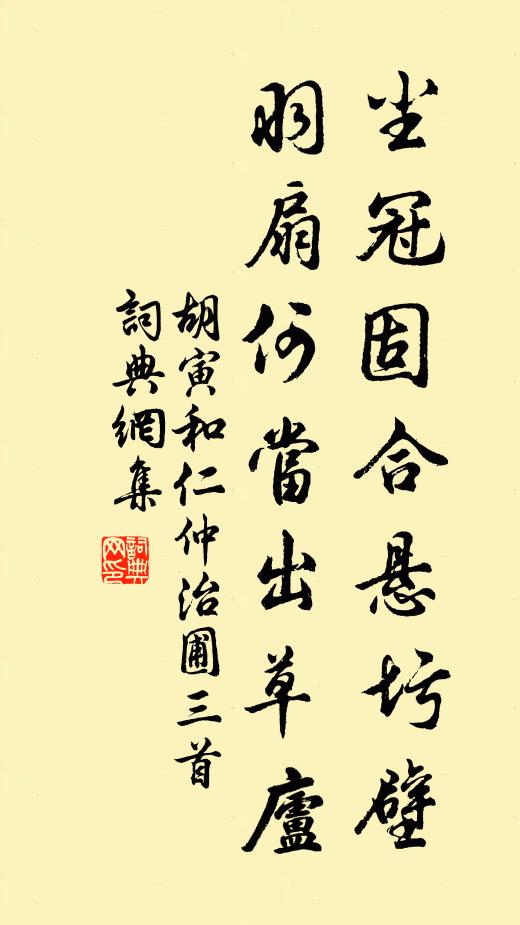 尘冠固合悬圬壁
羽扇何當出草廬
胡寅和仁仲治圃三首
詞典網集
詞典
网印